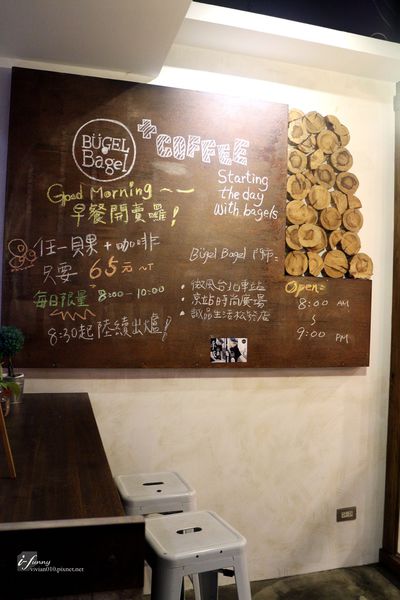 BÜGEL
Bagel
+COFFEE
Starting
the day
with bagels
Good Morning ~~
早餐開賣囉!
任一貝果+咖啡
只要 65元 NT
每日限量 8:00-10:00
8:30起陸續出爐!
Bügel Bagel 門市=
• 微風台北車站
• 京站時尚廣場
• 誠品生活松菸店
Open=
8:00 AM
~
9:00 PM
i-funny
vivian010.pixnet.net